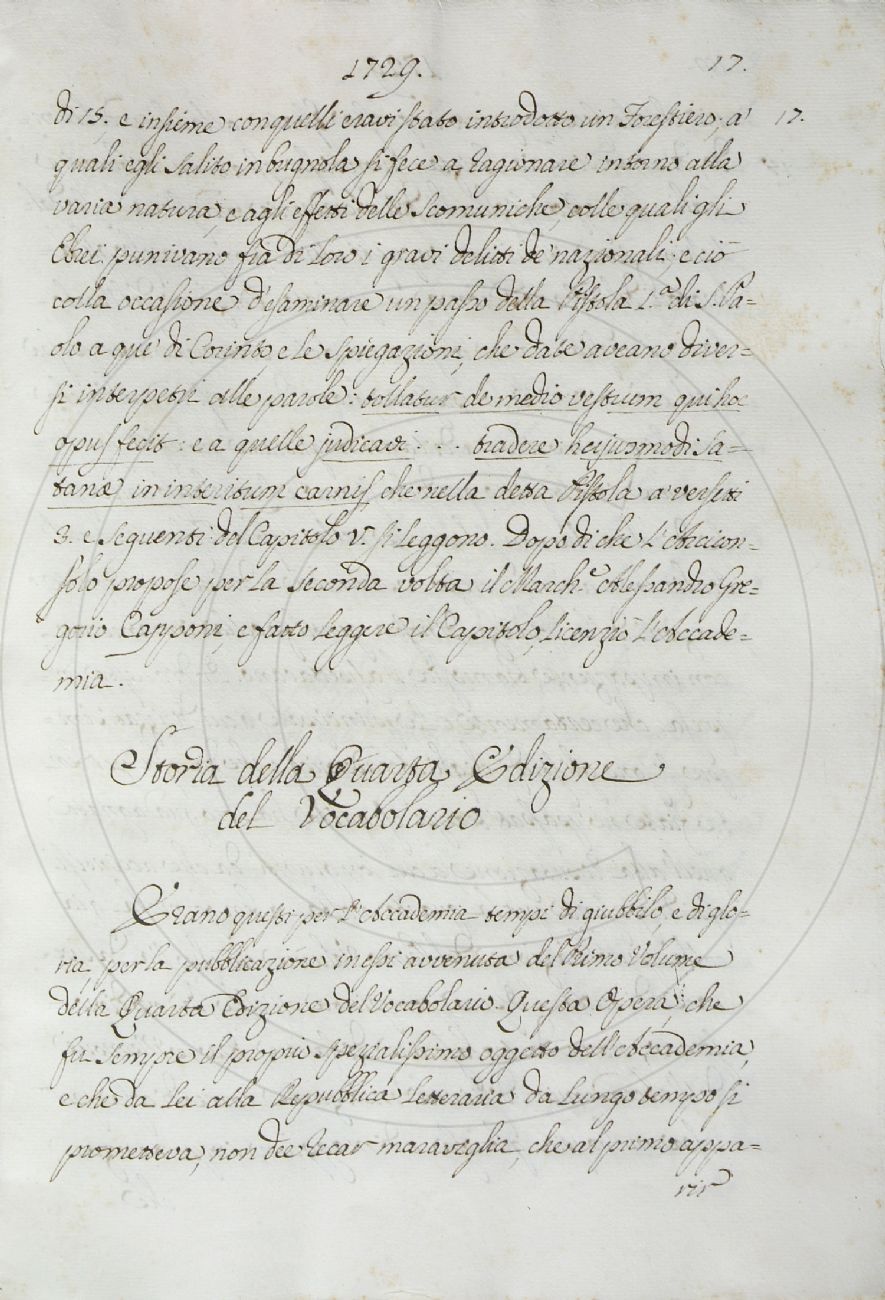 1729.
17.
di 15. e insieme con quelli eravi stato introdotto un Forestiero, a' 17.
quali egli salito in bugnola si fece a ragionare intorno alla
varia natura, e agli effetti delle Scomuniche, colle quali gli
Ebrei punivano fra di loro i gravi delitti de' nazionali; e ciò
colla occasione d'esaminare un passo della Pistola 1.ª di S. Pa=
olo a que' di Corinto, e le spiegazioni, che date aveano diver=
si interpetri alle parole: tollatur de medio vestrum qui hoc
opus fecit: e a quelle judicavi . . . tradere hujusmodi Sa=
tanæ in interitum carnis che nella detta Pistola a' versetti
3. e seguenti del Capitolo V. si leggono. Dopo di che l'Arcicon=
solo propose per la seconda volta il March.e Alessandro Gre=
gorio Capponi, e fatto leggere il Capitolo, licenziò l'Accade=
mia.
Storia della Quarta Edizione
del Vocabolario
Erano questi per l'Accademia tempi di giubbilo, e di glo=
ria, per la pubblicazione in essi avvenuta del Primo Volume
della Quarta Edizione del Vocabolario. Questa Opera, che
fu sempre il proprio spezialissimo oggetto dell'Accademia,
e che da lei alla Repubblica letteraria da lungo tempo si
prometteva, non dee recar maraviglia, che al primo appa=
rir